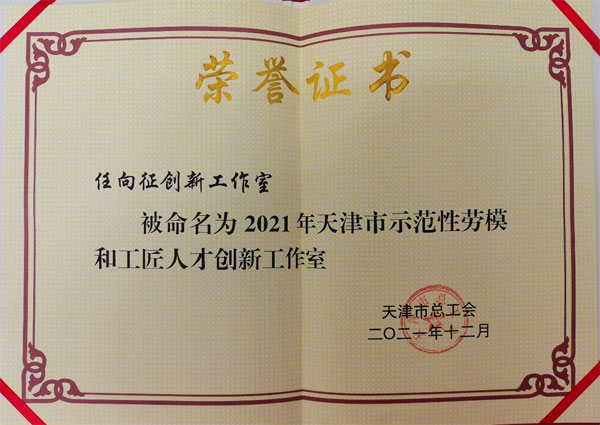 荣誉证书
任向征创新工作室
被命名为2021年天津市示范性劳模
和工匠人才创新工作室
天津市总工会
二〇二一年十二月